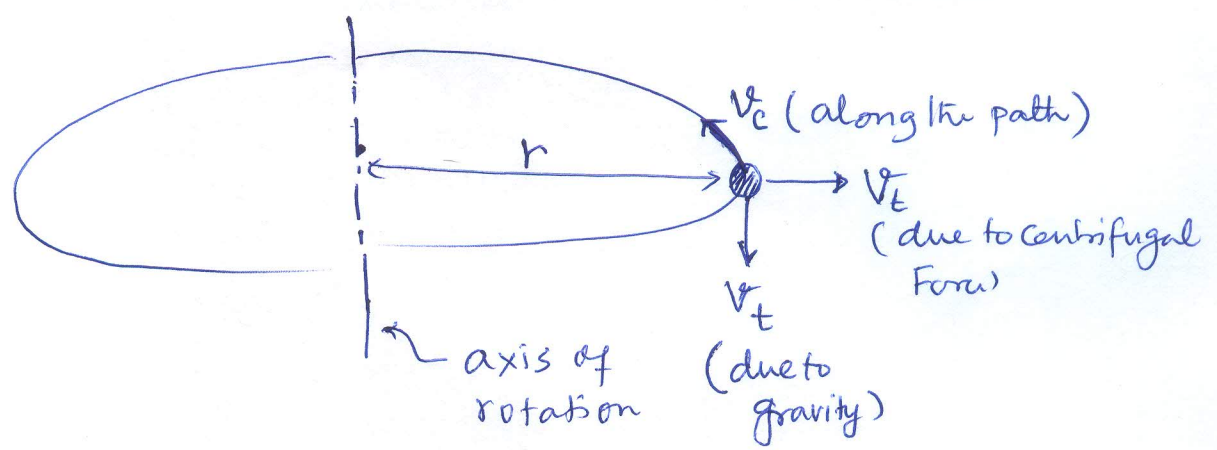 v_c (along the path)
r
v_t
(due to centrifugal
Force)
v_t
(due to
gravity)
axis of
rotation